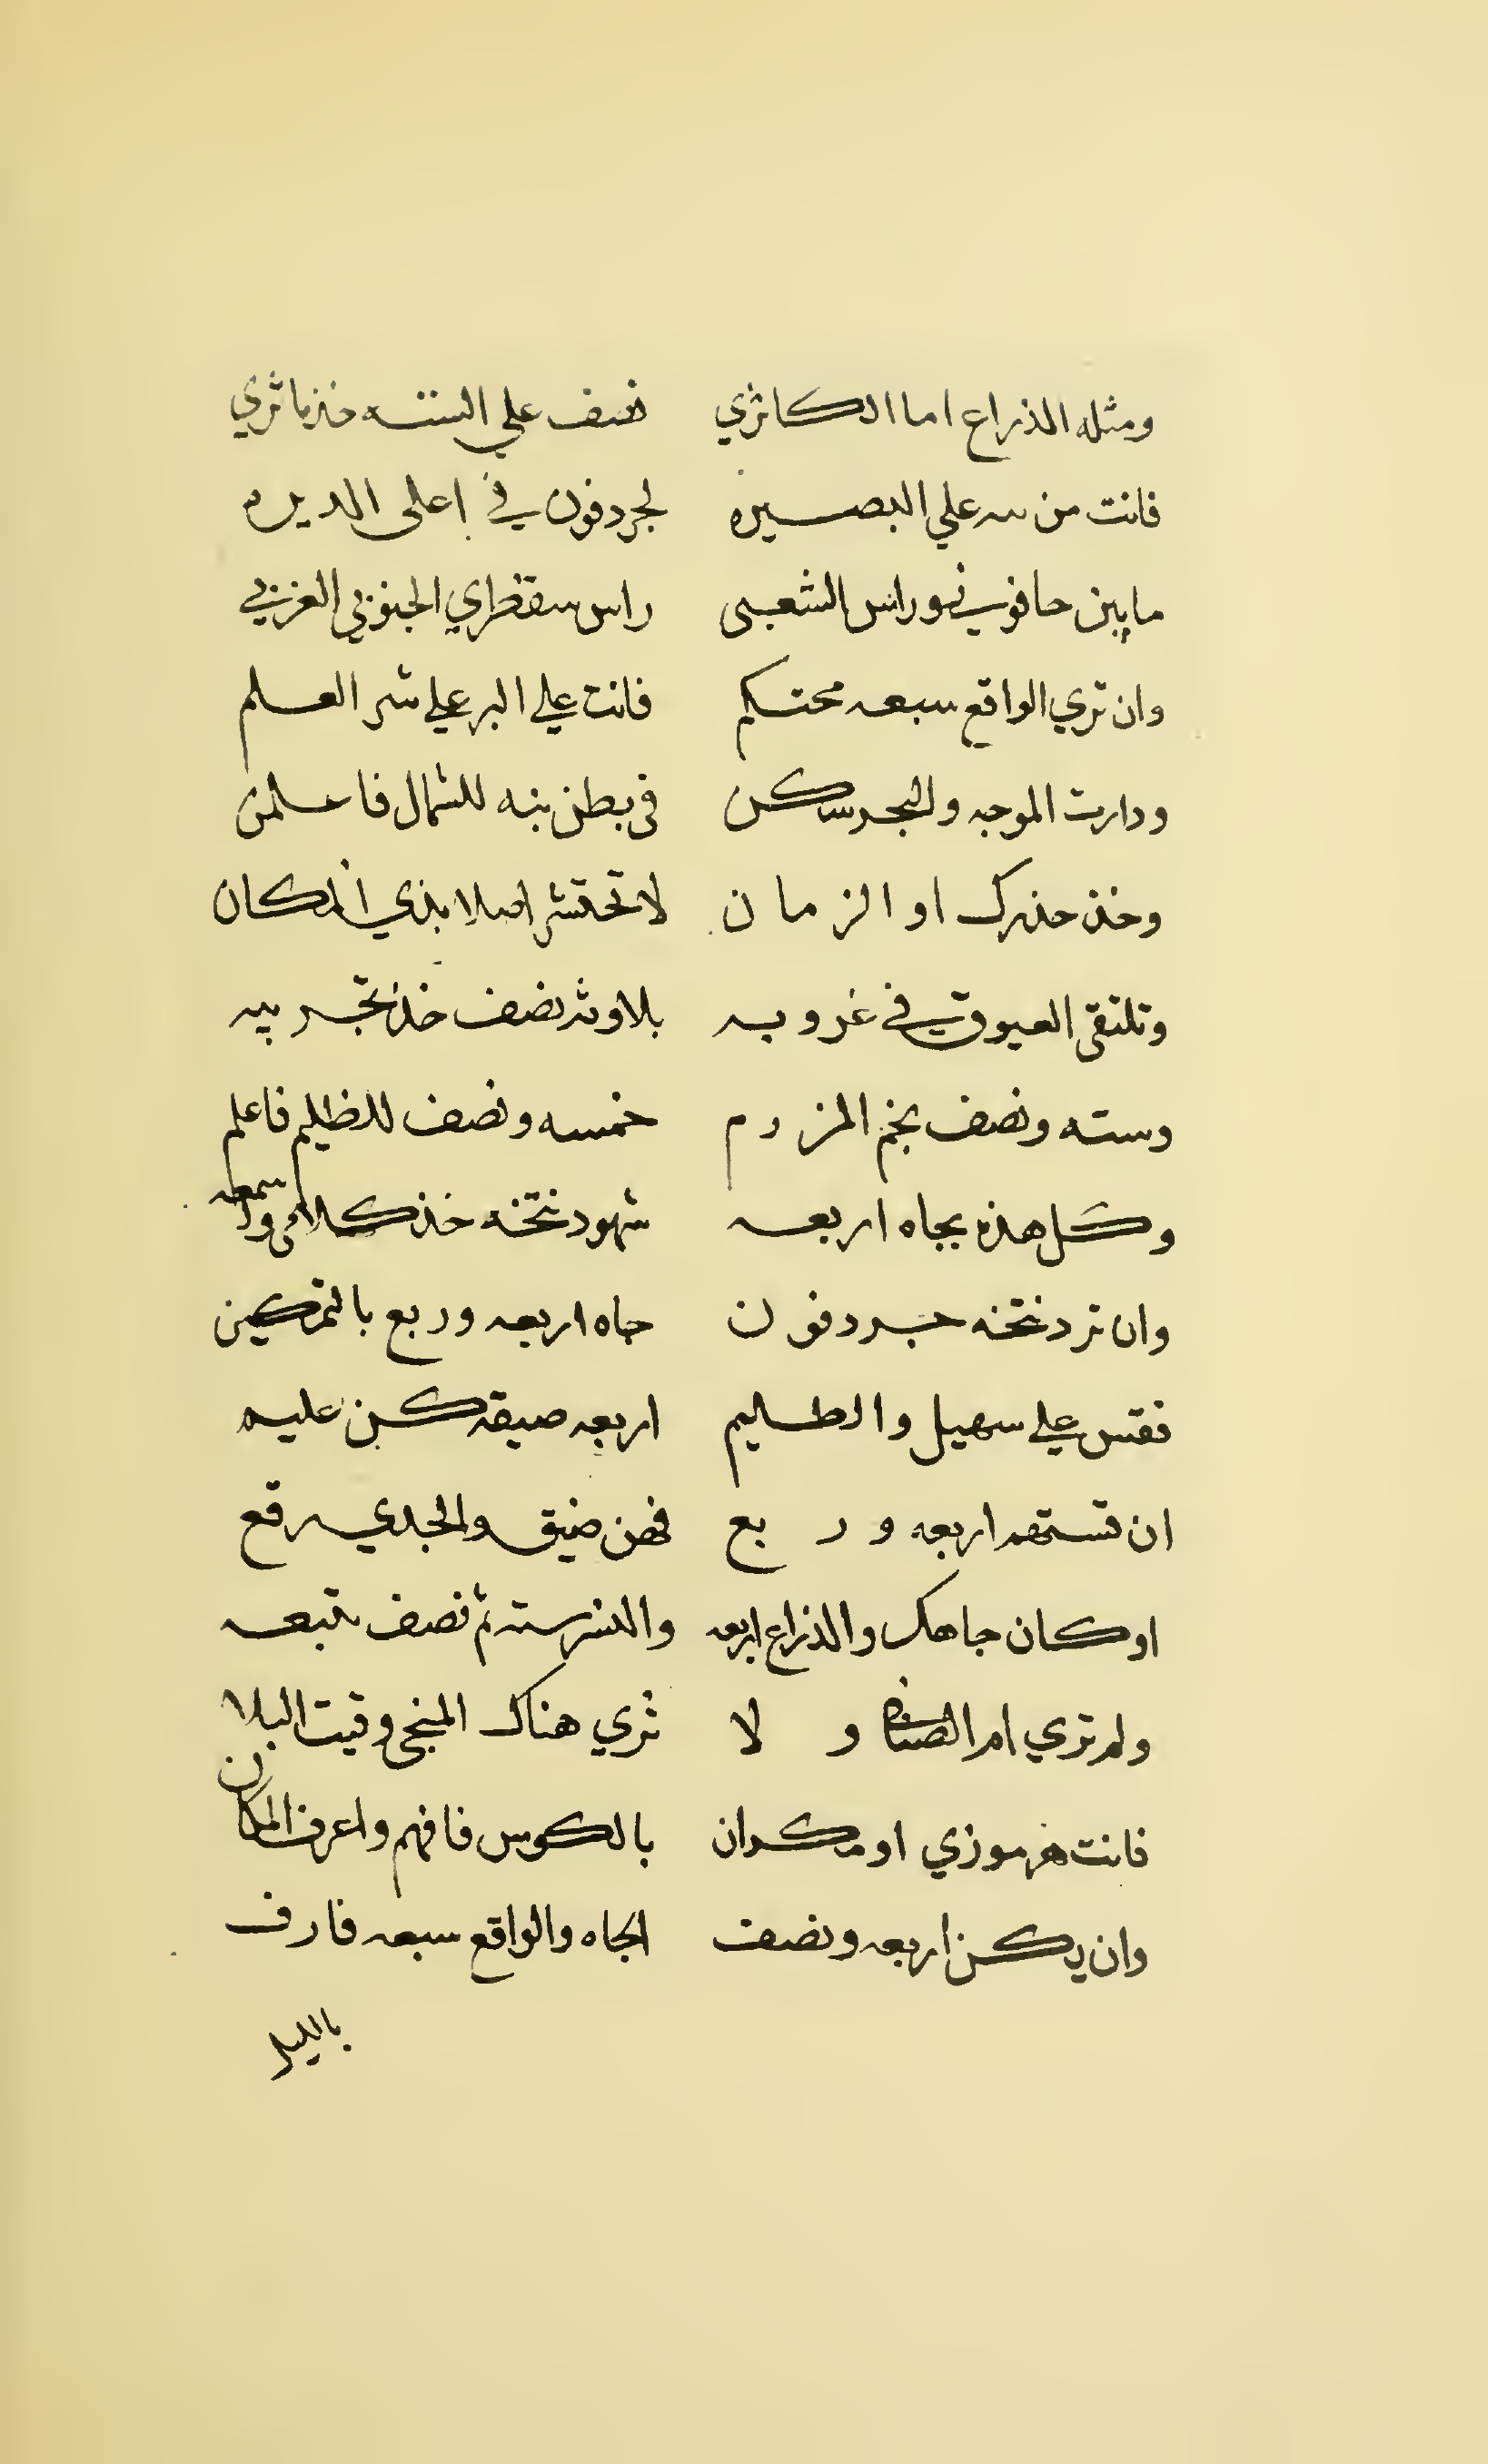 ومثله الذراع اما الكاثري نصف علي السته خذ ما تري
فانت من علي البصيره لجردفون في اعلى الديره
ما بين حافوني وراس الشعبى راس سقطري الجنوبي الغربي
وان تري الواقع سبعه محتكم فانت علي البر علي شر العلم
ودارت الموجه والبحر ساكن في بطن بنه للشمال فاعلمن
وخذ حذرك او الزمان لا تحتشر اصلا بذي المكان
وتلتقى العيوق في غروبه بلاوثه نصف خذ تجربيه
وسته ونصف نجم المرزم خمسه ونصف للظليم فاعلم
وكل هذه بجاه اربعه شهود نتخه خذ كلامى واسمعه
وان ترد نتخه جردفون جاه اربعه وربع بالتمكين
فقس علي سهيل والظليم اربعه ضيقه كن عليم
ان قستهم اربعه وربع فهن ضيق والجدي رقع
او كان جاهك والذراع اربعه والنسر سته ثم نصف يتبعه
ولم تري ام الصناه ولا تري هناك المنجي وقيت البلا
فانت هرموزي او مكران بالكوس فافهم واعرف المكان
وان يكن اربعه ونصف الجاه والواقع سبعه فارف
بالليل